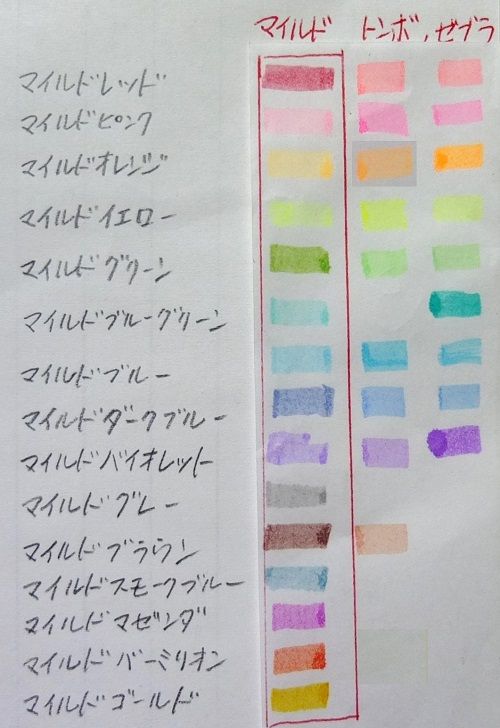 マイルド トンボ ゼブラ
マイルドレッド
マイルドピンク
マイルドオレンジ
マイルドイエロー
マイルドグリーン
マイルドブルーグリーン
マイルドブルー
マイルドダークブルー
マイルドバイオレット
マイルドグレー
マイルドブラウン
マイルドスモークブルー
マイルドマゼンダ
マイルドバーミリオン
マイルドゴールド